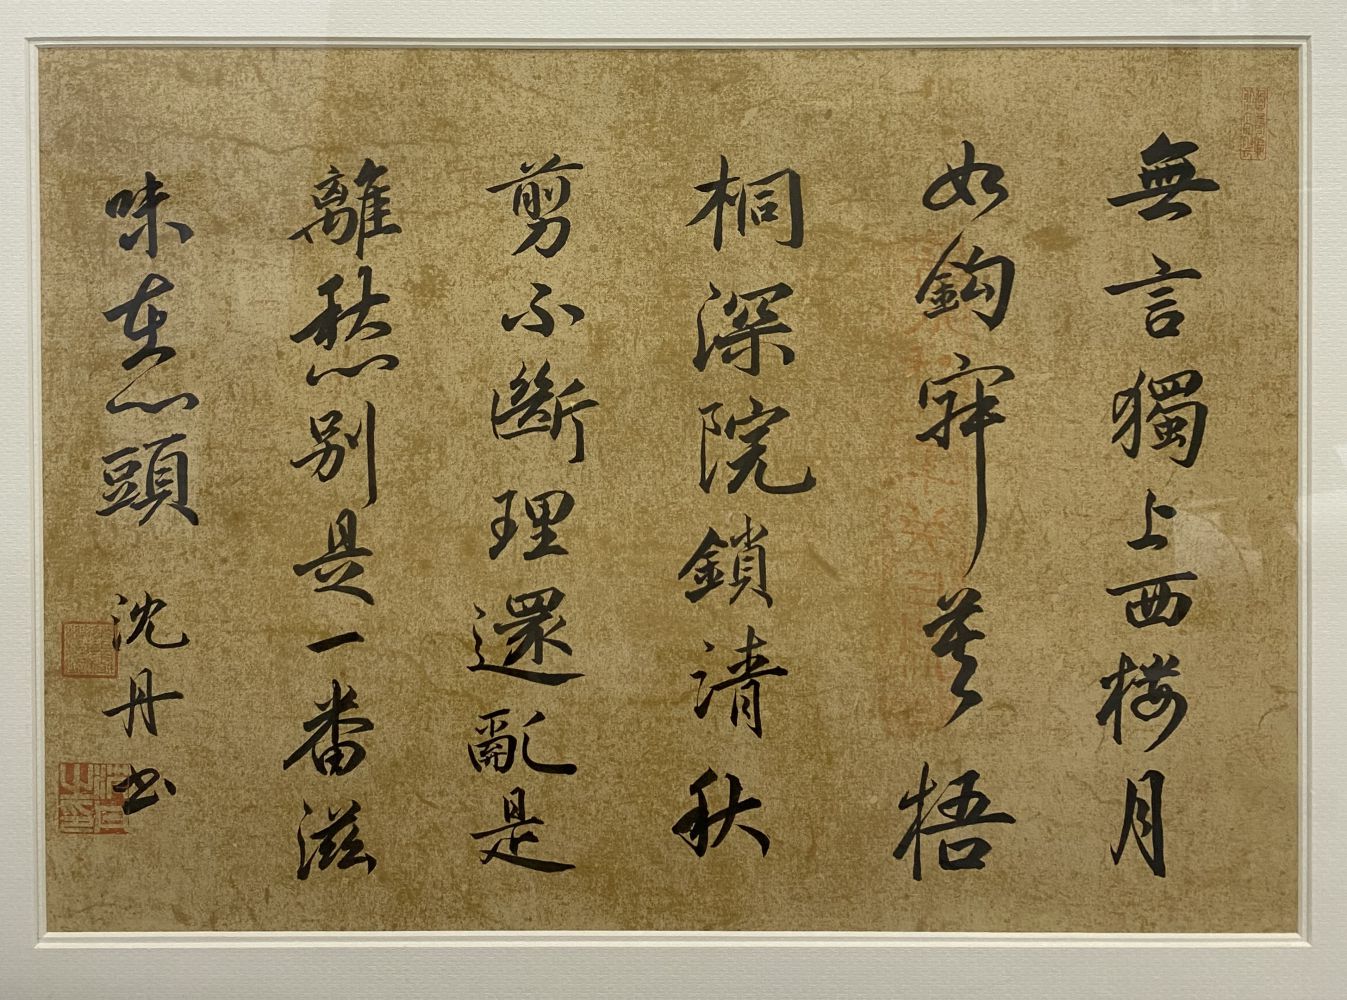 無言獨上西楼月
如鈎寂寞梧
桐深院鎖清秋
剪不斷理還亂是
離愁別是一番滋
味在心頭 沈丹书